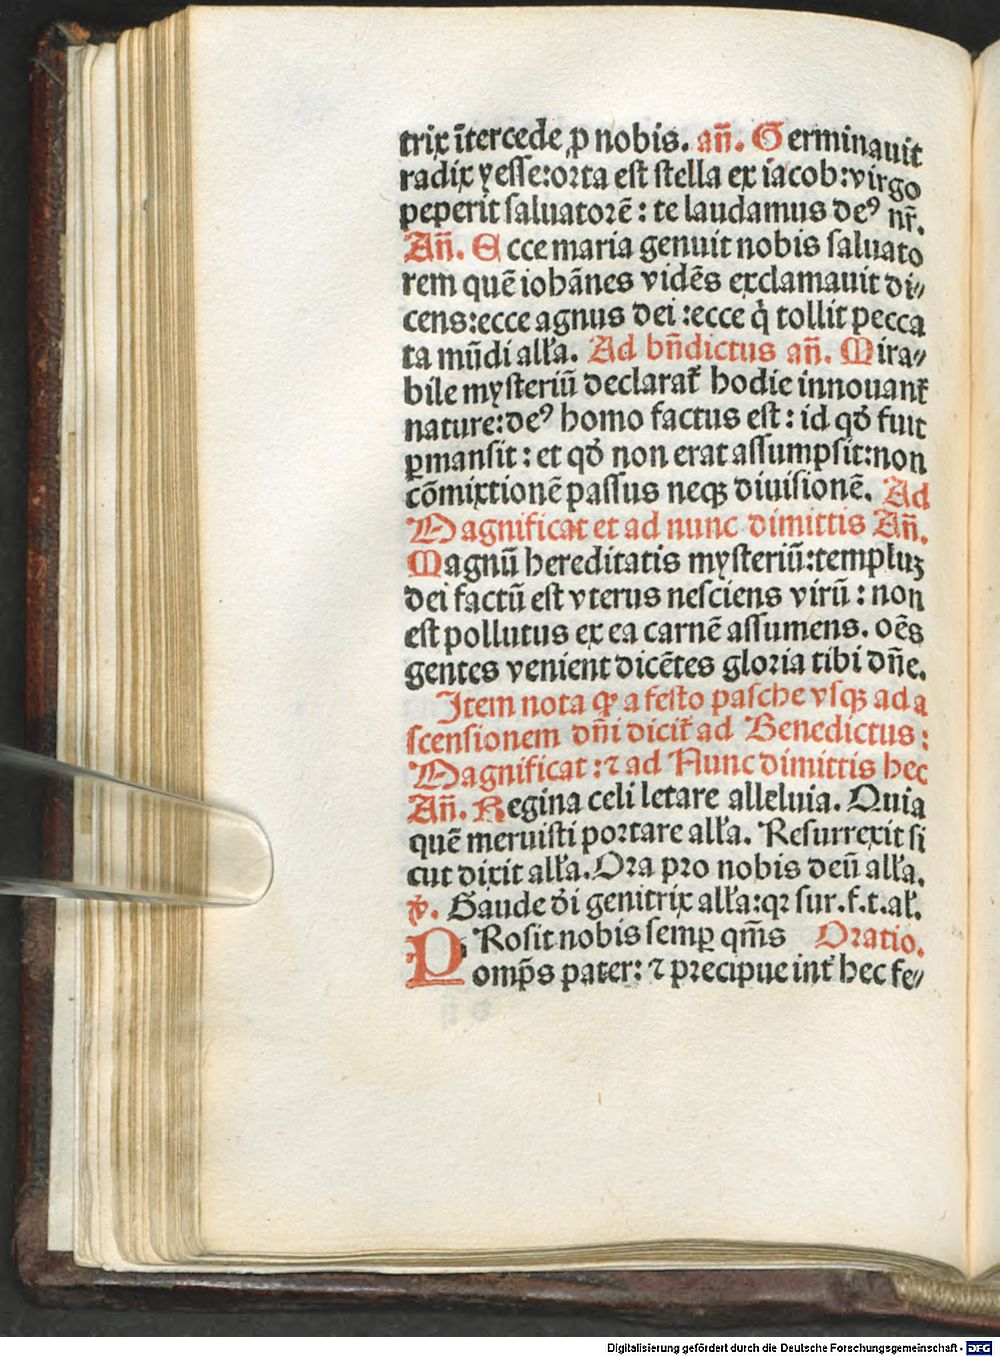 trix ĩtercede ꝓ nobis. añ. Germinauit
radix yesse:orta est stella ex iacob:virgo
peperit saluatorẽ : te laudamus deꝰ nr̃.
Añ. Ecce maria genuit nobis saluato
rem quẽ iohãnes vidẽs exclamauit di⸗
cens:ecce agnus dei :ecce q̇ tollit pecca
ta mũdi alľa. Ad bñdictus añ. Mira⸗
bile mysteriũ declarat᷑ hodie innouant᷑
nature:deꝰ homo factus est : id qđ fuit
ꝑmansit : et qđ non erat assumpsit:non
cõmixtionẽ passus neqꝫ diuisionẽ. Ad
Magnificat et ad nunc dimittis Añ.
Magnũ hereditatis mysteriũ:templuꝫ
dei factũ est vterus nesciens virũ : non
est pollutus ex ea carnẽ assumens. oẽs
gentes venient dicẽtes gloria tibi dñe.
Item nota ꝙ a festo pasche vsqꝫ ad a
scensionem dñi dicit᷑ ad Benedictus :
Magnificat : ⁊ ad Nunc dimittis hec
Añ. Regina celi letare alleluia. Quia
quẽ meruisti portare alľa. Resurrexit si
cut dixit alľa. Ora pro nobis deũ alľa.
℣. Gaude đi genitrix alľa:qꝛ sur.f.t.aľ.
PRosit nobis semꝑ qm̃s Oratio.
omp̃s pater: ⁊ precipue int᷑ hec fe⸗
Digitalisierung gefördert durch die Deutsche Forschungsgemeinschaft - DFG